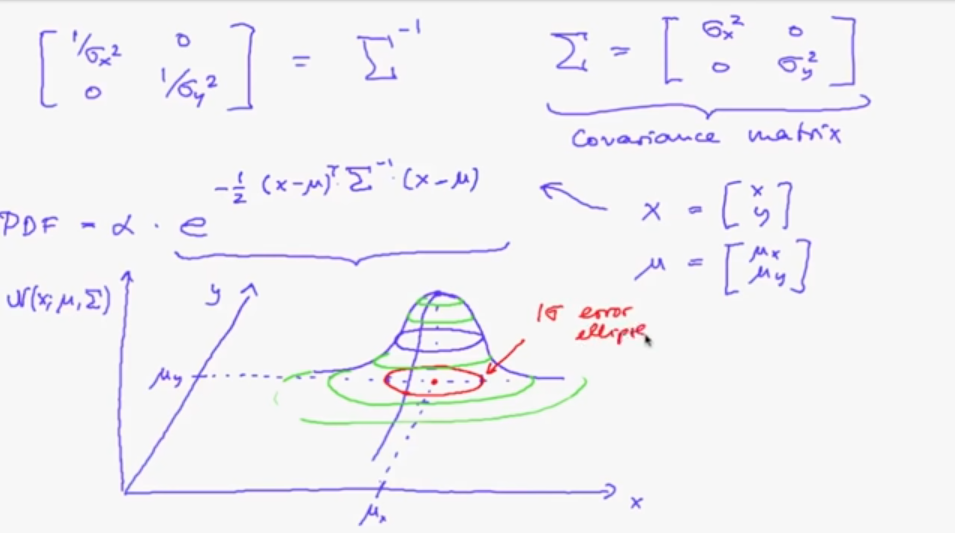 [ 1/σx² 0 ; 0 1/σy² ] = Σ⁻¹
Σ = [ σx² 0 ; 0 σy² ]
Covariance matrix
PDF = α · e^(-½ (x-μ)ᵀ Σ⁻¹ (x-μ))
x = [ x ; y ]
μ = [ μx ; μy ]
N(x; μ, Σ)
y
1σ error
ellipse
μy
x
μx